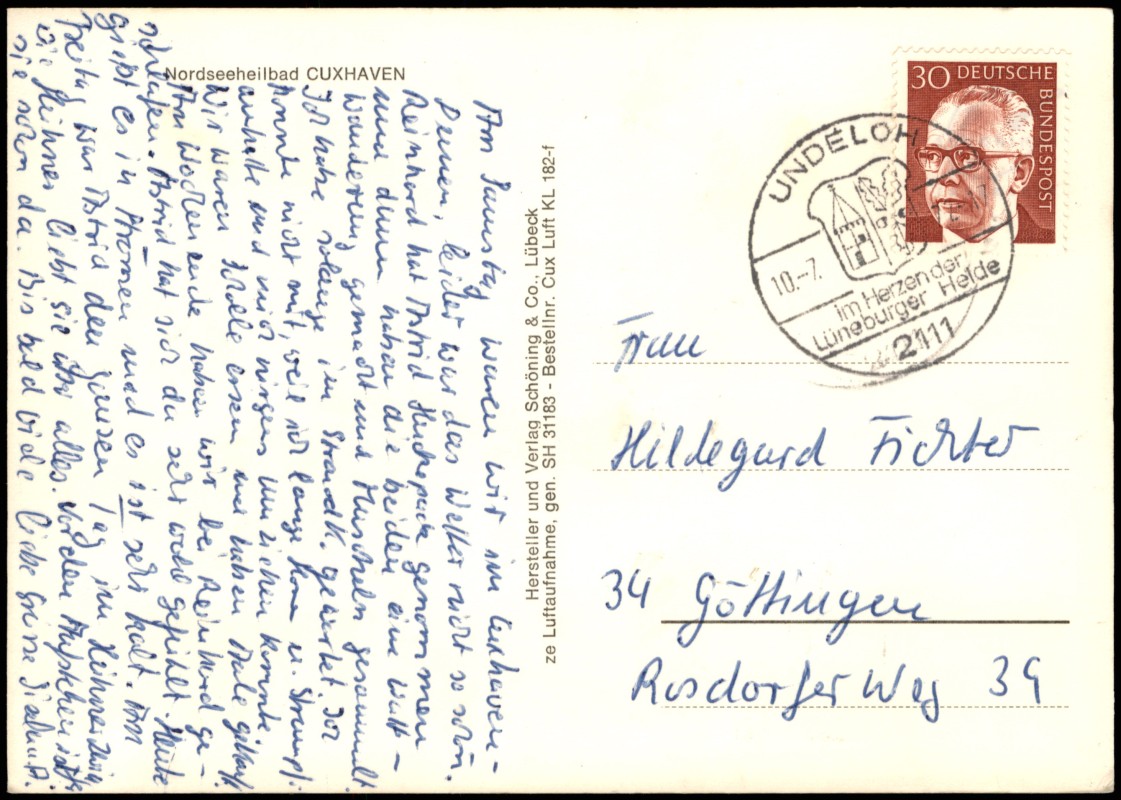 Nordseeheilbad CUXHAVEN
Am Samstag waren wir in Cuxhaven-
Duhnen, leider war das Wetter nicht so schön.
Reinhard hat Astrid Huckepack genommen
und dann haben die beiden eine Watt-
wanderung gemacht und Muscheln gesammelt.
Ich habe solange im Strandk. gewartet. Ich
konnte nicht mit, weil ich lange Hose u. Strumpf.
anhatte und mich nirgens umziehen konnte.
Wir waren Scholle essen und haben Aale gekauft.
Am Wochenende haben wir bei Reinhard ge-
schlafen. Astrid hat sich da sehr wohl gefühlt. Heute
gießt es in Strömen und es ist sehr kalt. Am
Freitag war Astrid den ganzen Tag im Hühnerzwing.
die Hühner liebt sie über alles. Vor dem Aufstehen ist
sie schon da. Bis bald viele liebe Grüsse
Hersteller und Verlag Schöning & Co., Lübeck
ze Luftaufnahme, gen. SH 31183 - Bestellnr. Cux Luft KL 182-f
30 DEUTSCHE
BUNDESPOST
UNDELOH
10.-7.
im Herzen der
Lüneburger Heide
2111
Frau
Hildegard Fichter
34 Göttingen
Rosdorfer Weg 39